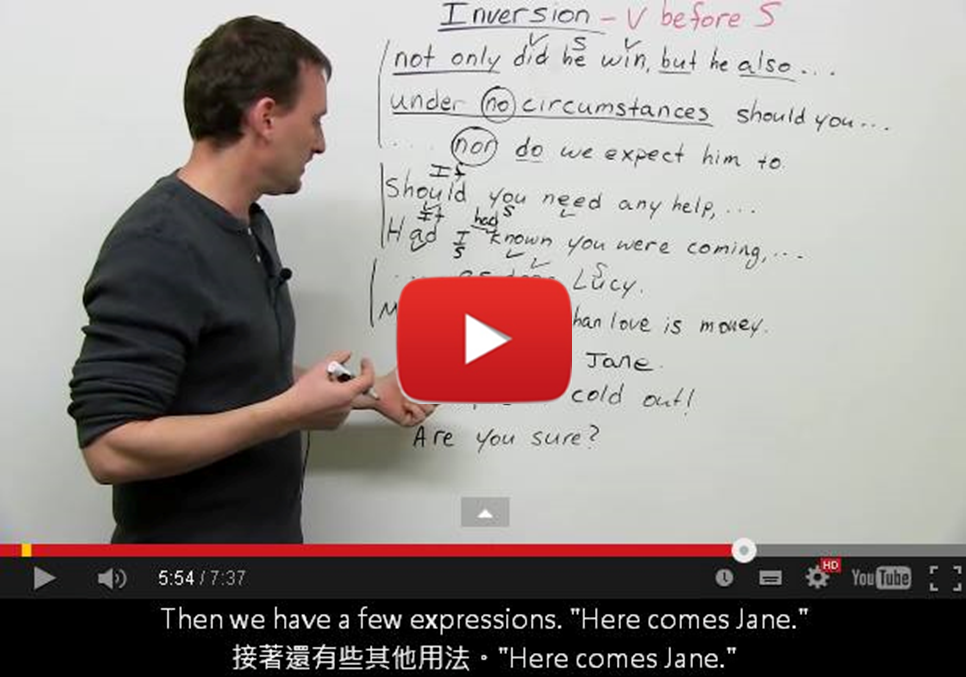 Inversion - V before S
V S V
not only did he win, but he also...
under no circumstances should you...
.... nor do we expect him to.
If
Should you need any help,...
If had S
Had I known you were coming,...
S
S
Lucy.
than love is money.
Jane.
cold out!
Are you sure?
5:54 / 7:37
HD
YouTube
Then we have a few expressions. "Here comes Jane."
接著還有些其他用法。"Here comes Jane."